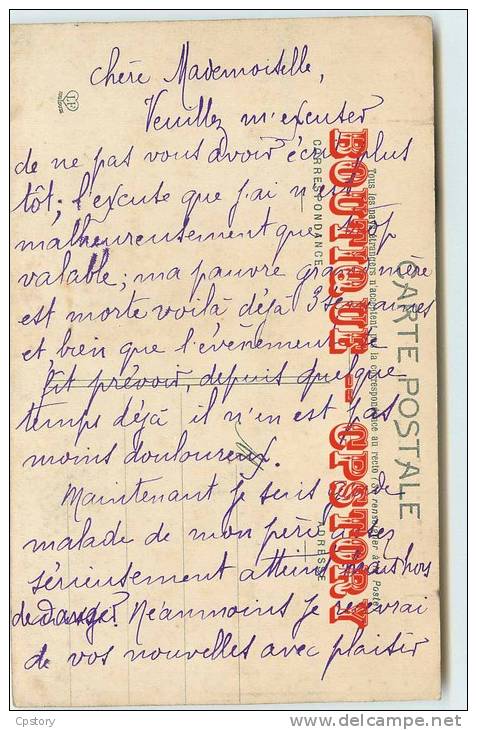 Chère Mademoiselle,
Veuillez m'excuser
de ne pas vous avoir écrit plus
tôt; l'excuse que j'ai n'est
malheureusement que trop
valable; ma pauvre grand'mère
est morte voilà déjà 3 semaines
et bien que l'évènement se
fit prévoir, depuis quelque
temps déjà il n'en est pas
moins douloureux.
Maintenant je suis garde
malade de mon père assez
sérieusement atteint mais hors
de danger. Néanmoins je recevrai
de vos nouvelles avec plaisir
CARTE POSTALE
Tous les pays étrangers n'acceptent pas la correspondance au recto (Se renseigner à la Poste)
CORRESPONDANCE
ADRESSE
BOUTIQUE -- CPSTORY
Cpstory
http://www.delcampe.net